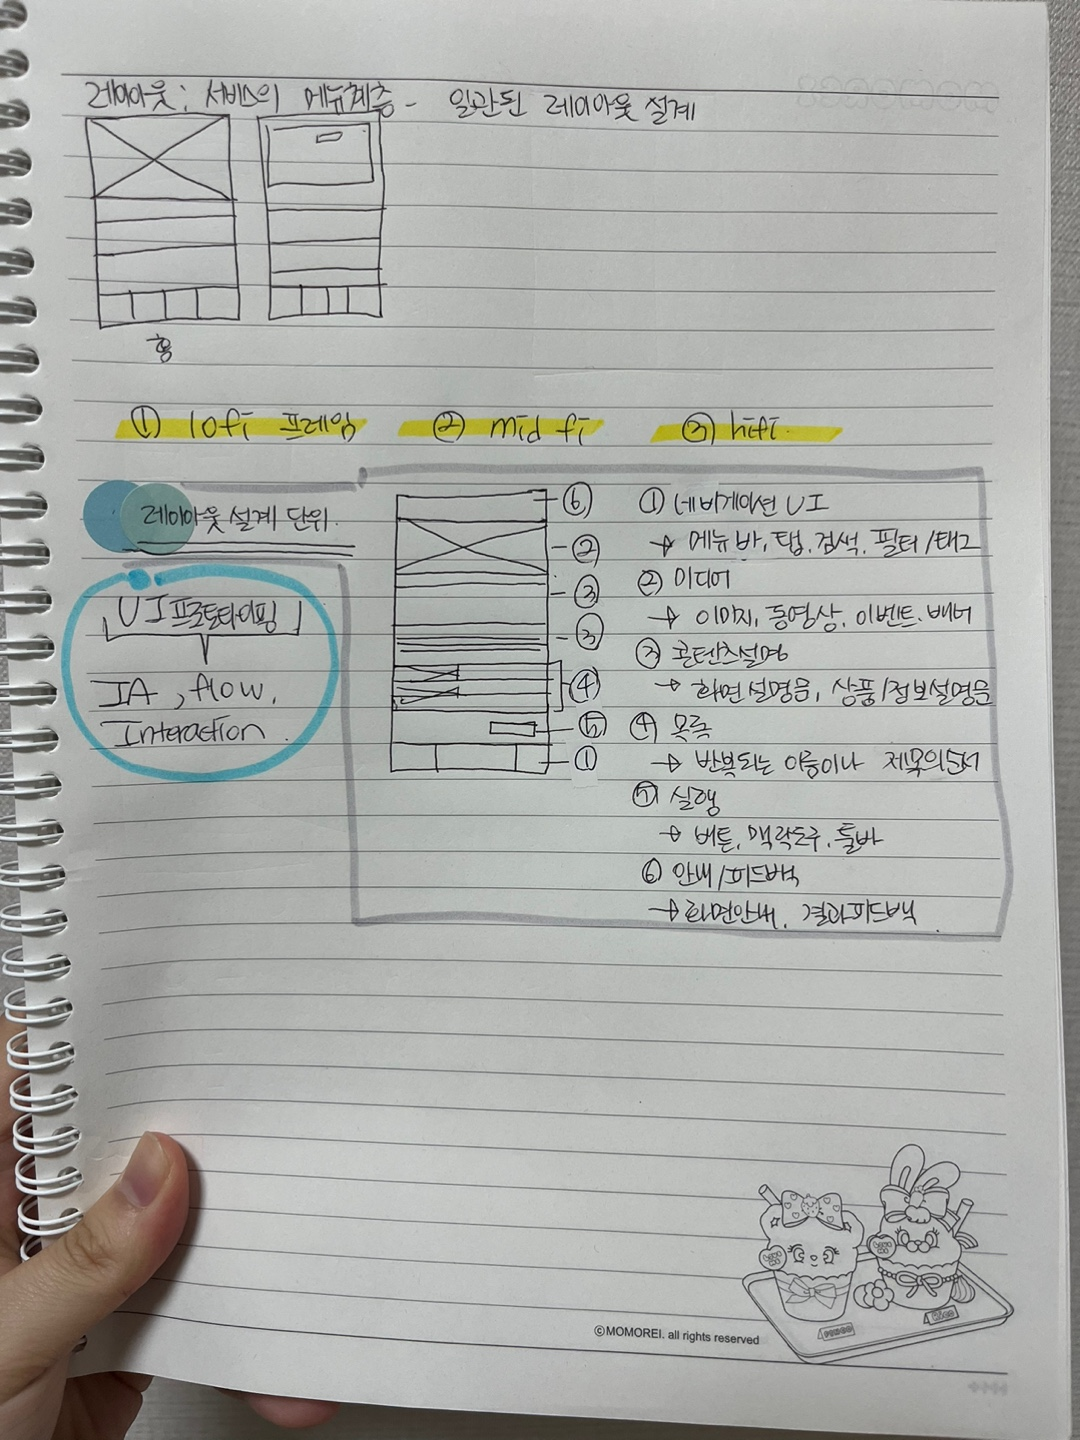 레이아웃 : 서비스의 메뉴계층 - 일관된 레이아웃 설계
홈
① lofi 프레임 ② mid fi ③ hifi.
레이아웃 설계 단위.
UI프로토타이핑
IA, flow,
Interaction.
⑥
②
③
③
④
⑤
①
① 네비게이션 UI
→ 메뉴 바, 탭, 검색, 필터/태그
② 미디어
→ 이미지, 동영상, 이벤트, 배너
③ 콘텐츠설명
→ 화면 설명음, 상품/정보설명음
④ 목록
→ 반복되는 이름이나 제목의
⑤ 실행
→ 버튼, 맥락도구, 툴바
⑥ 안내/피드백
→ 화면안내, 결과피드백.
©MOMOREI. all rights reserved